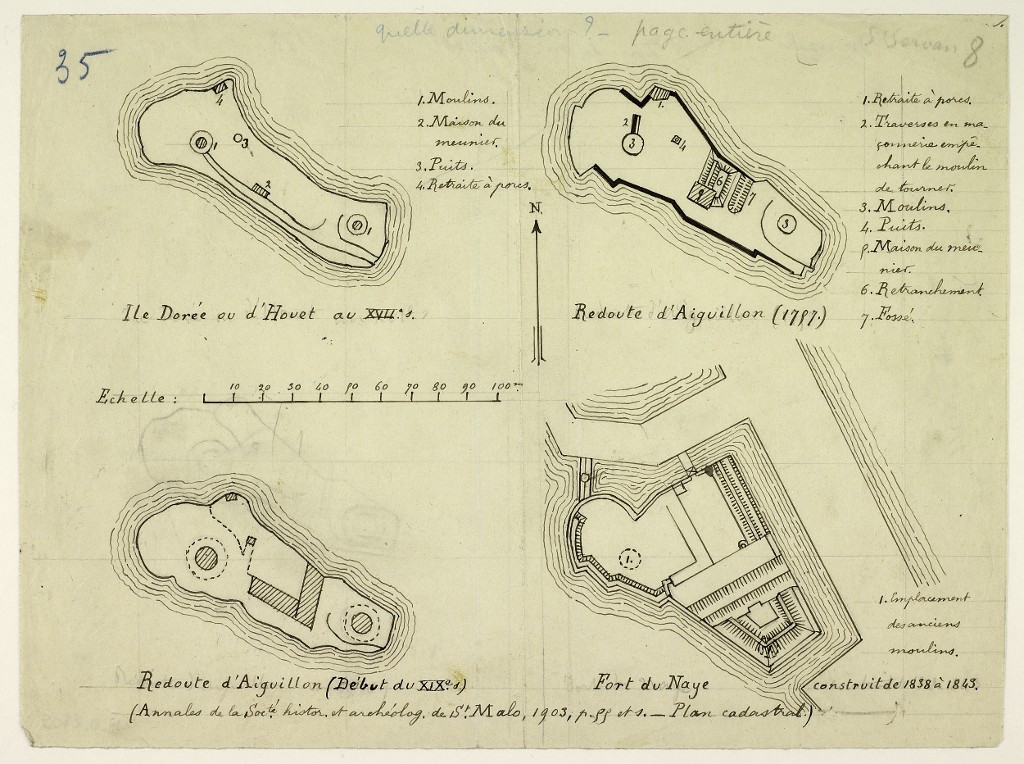 quelle dimension ? – page entière
St Servan 8
35
1. Moulins.
2. Maison du
meunier.
3. Puits.
4. Retraite à porcs.
4
1
3
2
1
Ile Dorée ou d'Hovet au XVII.e s.
N.
1. Retraite à porcs.
2. Traverses en ma-
çonnerie empê-
chant le moulin
de tourner.
3. Moulins.
4. Puits.
5. Maison du meu-
nier.
6. Retranchement.
7. Fossé.
1.
2
3
4
6
3
Redoute d'Aiguillon (1757.)
Echelle :
10 20 30 40 50 60 70 80 90 100m
1.
1. Emplacement
des anciens
moulins.
Redoute d'Aiguillon (Début du XIXe s)
Fort du Naye
construit de 1838 à 1843.
(Annales de la Socté histor. et archéolog. de St Malo, 1903, p. 55 et s. – Plan cadastral.)